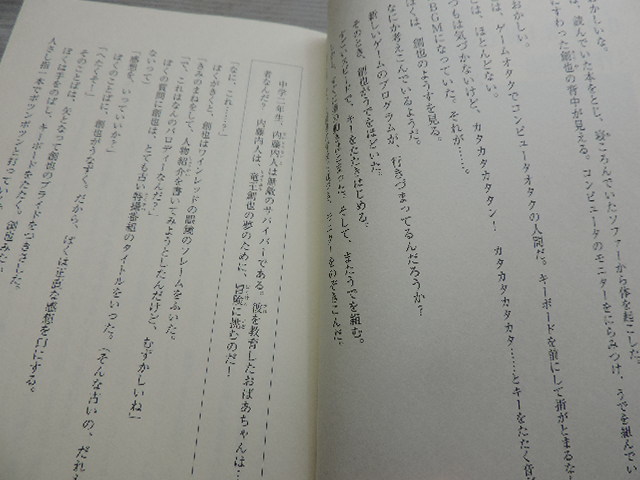 おかしいな。
は、読んでいた本をとじ、寝ころんでいたソファーから体を起こした。
にすわった創也の背中が見える。コンピュータのモニターをにらみつけ、うでを組んでい
おかしい。
は、ゲームオタクでコンピュータオタクの人間だ。キーボードを前にして指がとまるな
は、ほとんどない。
つもは気づかないけど、カタカタカタタン！　カタカタカタカタ……とキーをたたく音が
BGMになっていた。それが……。
ぼくは、創也のようすを見る。
なにか考えこんでいるようだ。
新しいゲームのプログラムが、行きづまってるんだろうか？
そのとき、創也がうでをほどいた。
スピードで、キーをたたきはじめる。
そして、またうでを組む。
モニターをのぞきこんだ。
中学二年生、内藤内人は無敵のサバイバーである。彼を教育したおばあちゃんは…
者なんだ？　内藤内人は、竜王創也の夢のために、冒険に挑むのだ！
「なに、これ……？」
ぼくがきくと、創也はワインレッドの眼鏡のフレームをふいた。
「きみのまねをして、人物紹介を書いてみようとしたんだけど、むずかしいね」
「で、これはなんのパロディーなんだ？」
ぼくの質問に創也は、とても古い特撮番組のタイトルをいった。（そんな古いの、だれも
ないって）
「感想を、いっていいか？」
ぼくのことばに、創也がうなずく。だから、ぼくは正直な感想を口にする。
「へたくそ…」
そのことばは、矢となって創也のプライドをつきさした。
ぼくは手をのばし、キーボードをたたく。
人さし指一本でポツンポツンと打っていく。